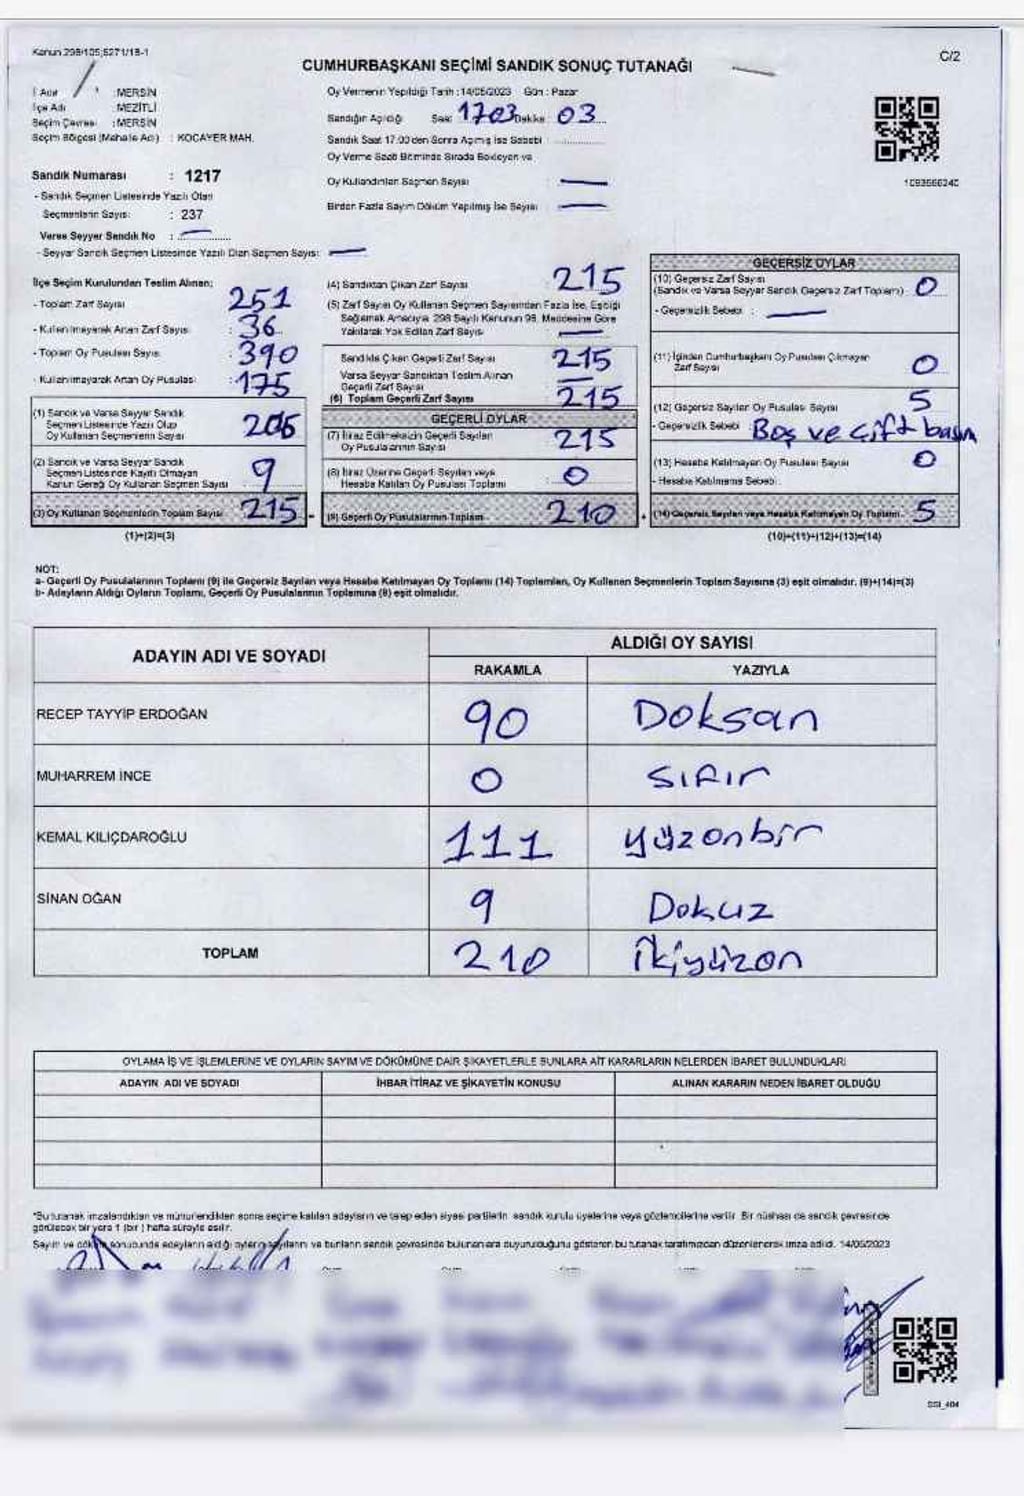 Kanun 298/105;5271/18-1
C/2
CUMHURBAŞKANI SEÇİMİ SANDIK SONUÇ TUTANAĞI
İl Adı : MERSİN
İlçe Adı : MEZİTLİ
Seçim Çevresi : MERSİN
Seçim Bölgesi (Mahalle Adı) : KOCAYER MAH.
Sandık Numarası : 1217
- Sandık Seçmen Listesinde Yazılı Olan
Seçmenlerin Sayısı : 237
Varsa Seyyar Sandık No :
- Seyyar Sandık Seçmen Listesinde Yazılı Olan Seçmen Sayısı:
Oy Vermenin Yapıldığı Tarih :14/05/2023 Gün : Pazar
Sandığın Açıldığı Saat 1703 Dakika : 03
Sandık Saat 17.00'den Sonra Açılmış İse Sebebi :
Oy Verme Saati Bitiminde Sırada Bekleyen ve
Oy Kullandırılan Seçmen Sayısı :
Birden Fazla Sayım Döküm Yapılmış İse Sayısı :
1093566240
İlçe Seçim Kurulundan Teslim Alınan;
- Toplam Zarf Sayısı : 251
- Kullanılmayarak Artan Zarf Sayısı : 36
- Toplam Oy Pusulası Sayısı : 390
- Kullanılmayarak Artan Oy Pusulası : 175
(1) Sandık ve Varsa Seyyar Sandık
Seçmen Listesinde Yazılı Olup
Oy Kullanan Seçmenlerin Sayısı 206
(2) Sandık ve Varsa Seyyar Sandık
Seçmen Listesinde Kayıtlı Olmayan
Kanun Gereği Oy Kullanan Seçmen Sayısı 9
(3) Oy Kullanan Seçmenlerin Toplam Sayısı 215
(1)+(2)=(3)
(4) Sandıktan Çıkan Zarf Sayısı : 215
(5) Zarf Sayısı Oy Kullanan Seçmen Sayısından Fazla İse, Eşitliği
Sağlamak Amacıyla 298 Sayılı Kanunun 98. Maddesine Göre
Yakılarak Yok Edilen Zarf Sayısı
Sandıkta Çıkan Geçerli Zarf Sayısı 215
Varsa Seyyar Sandıktan Teslim Alınan
Geçerli Zarf Sayısı
(6) Toplam Geçerli Zarf Sayısı 215
GEÇERLİ OYLAR
(7) İtiraz Edilmeksizin Geçerli Sayılan
Oy Pusulalarının Sayısı 215
(8) İtiraz Üzerine Geçerli Sayılan veya
Hesaba Katılan Oy Pusulası Toplamı : 0
(9) Geçerli Oy Pusulalarının Toplamı 210
GEÇERSİZ OYLAR
(10) Geçersiz Zarf Sayısı
(Sandık ve Varsa Seyyar Sandık Geçersiz Zarf Toplamı) : 0
- Geçersizlik Sebebi :
(11) İçinden Cumhurbaşkanı Oy Pusulası Çıkmayan
Zarf Sayısı 0
(12) Geçersiz Sayılan Oy Pusulası Sayısı 5
- Geçersizlik Sebebi Boş ve çift basım
(13) Hesaba Katılmayan Oy Pusulası Sayısı 0
- Hesaba Katılmama Sebebi :
(14) Geçersiz Sayılan veya Hesaba Katılmayan Oy Toplamı 5
(10)+(11)+(12)+(13)=(14)
NOT:
a- Geçerli Oy Pusulalarının Toplamı (9) ile Geçersiz Sayılan veya Hesaba Katılmayan Oy Toplamı (14) Toplamları, Oy Kullanan Seçmenlerin Toplam Sayısına (3) eşit olmalıdır. (9)+(14)=(3)
b- Adayların Aldığı Oyların Toplamı, Geçerli Oy Pusulalarının Toplamına (9) eşit olmalıdır.
ADAYIN ADI VE SOYADI
ALDIĞI OY SAYISI
RAKAMLA YAZIYLA
RECEP TAYYİP ERDOĞAN 90 Doksan
MUHARREM İNCE 0 sıfır
KEMAL KILIÇDAROĞLU 111 yüzonbir
SİNAN OĞAN 9 Dokuz
TOPLAM 210 İkiyüzon
OYLAMA İŞ VE İŞLEMLERİNE VE OYLARIN SAYIM VE DÖKÜMÜNE DAİR ŞİKAYETLERLE BUNLARA AİT KARARLARIN NELERDEN İBARET BULUNDUKLARI
ADAYIN ADI VE SOYADI İHBAR İTİRAZ VE ŞİKAYETİN KONUSU ALINAN KARARIN NEDEN İBARET OLDUĞU
*Bu tutanak imzalandıktan ve mühürlendikten sonra seçime katılan adayların ve talep eden siyasi partilerin sandık kurulu üyelerine veya gözlemcilerine verilir. Bir nüshası da sandık çevresinde
görülecek bir yere 1 (bir ) hafta süreyle asılır.
Sayım ve döküm sonucunda adayların aldığı oyların sayılarını ve bunların sandık çevresinde bulunanlara duyurulduğunu gösteren bu tutanak tarafımızdan düzenlenerek imza edildi. 14/05/2023